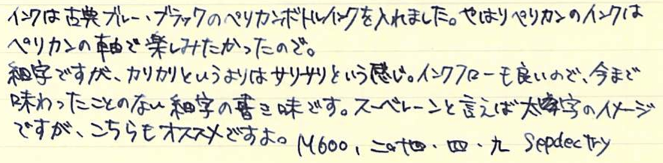 インクは古典ブルー・ブラックのペリカンボトルインクを入れました。やはりペリカンのインクは
ペリカンの軸で楽しみたかったので。
細字ですが、カリカリというよりはサリサリという感じ。インクフローも良いので、今まで
味わったことのない細字の書き味です。スーベレーンと言えば太字のイメージ
ですが、こちらもオススメですよ。M600, 二〇十四・四・九 Sepdectry